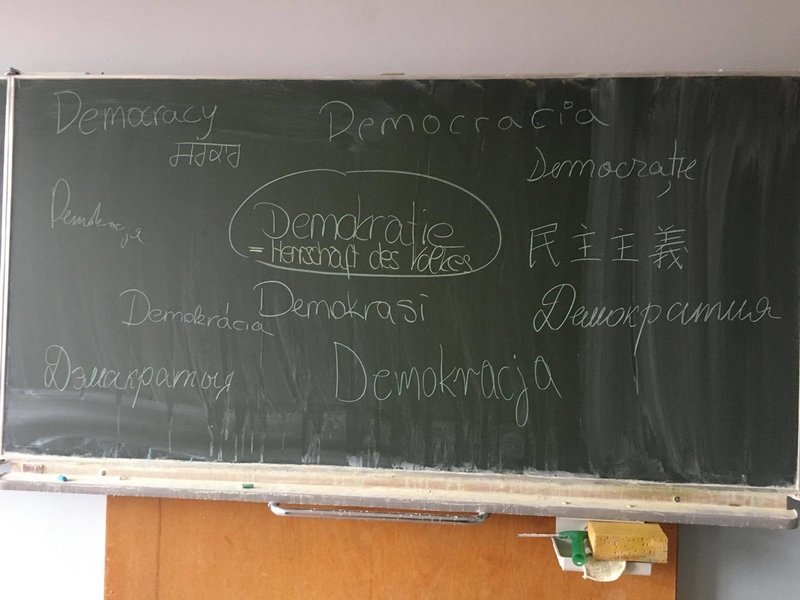 Democracy
Democracia
Democraţie
Demokracja
Demokratie
= Herrschaft des Volkes
民主主義
Demokrácia
Demokrasi
Демократия
Дэмакратыя
Demokracja